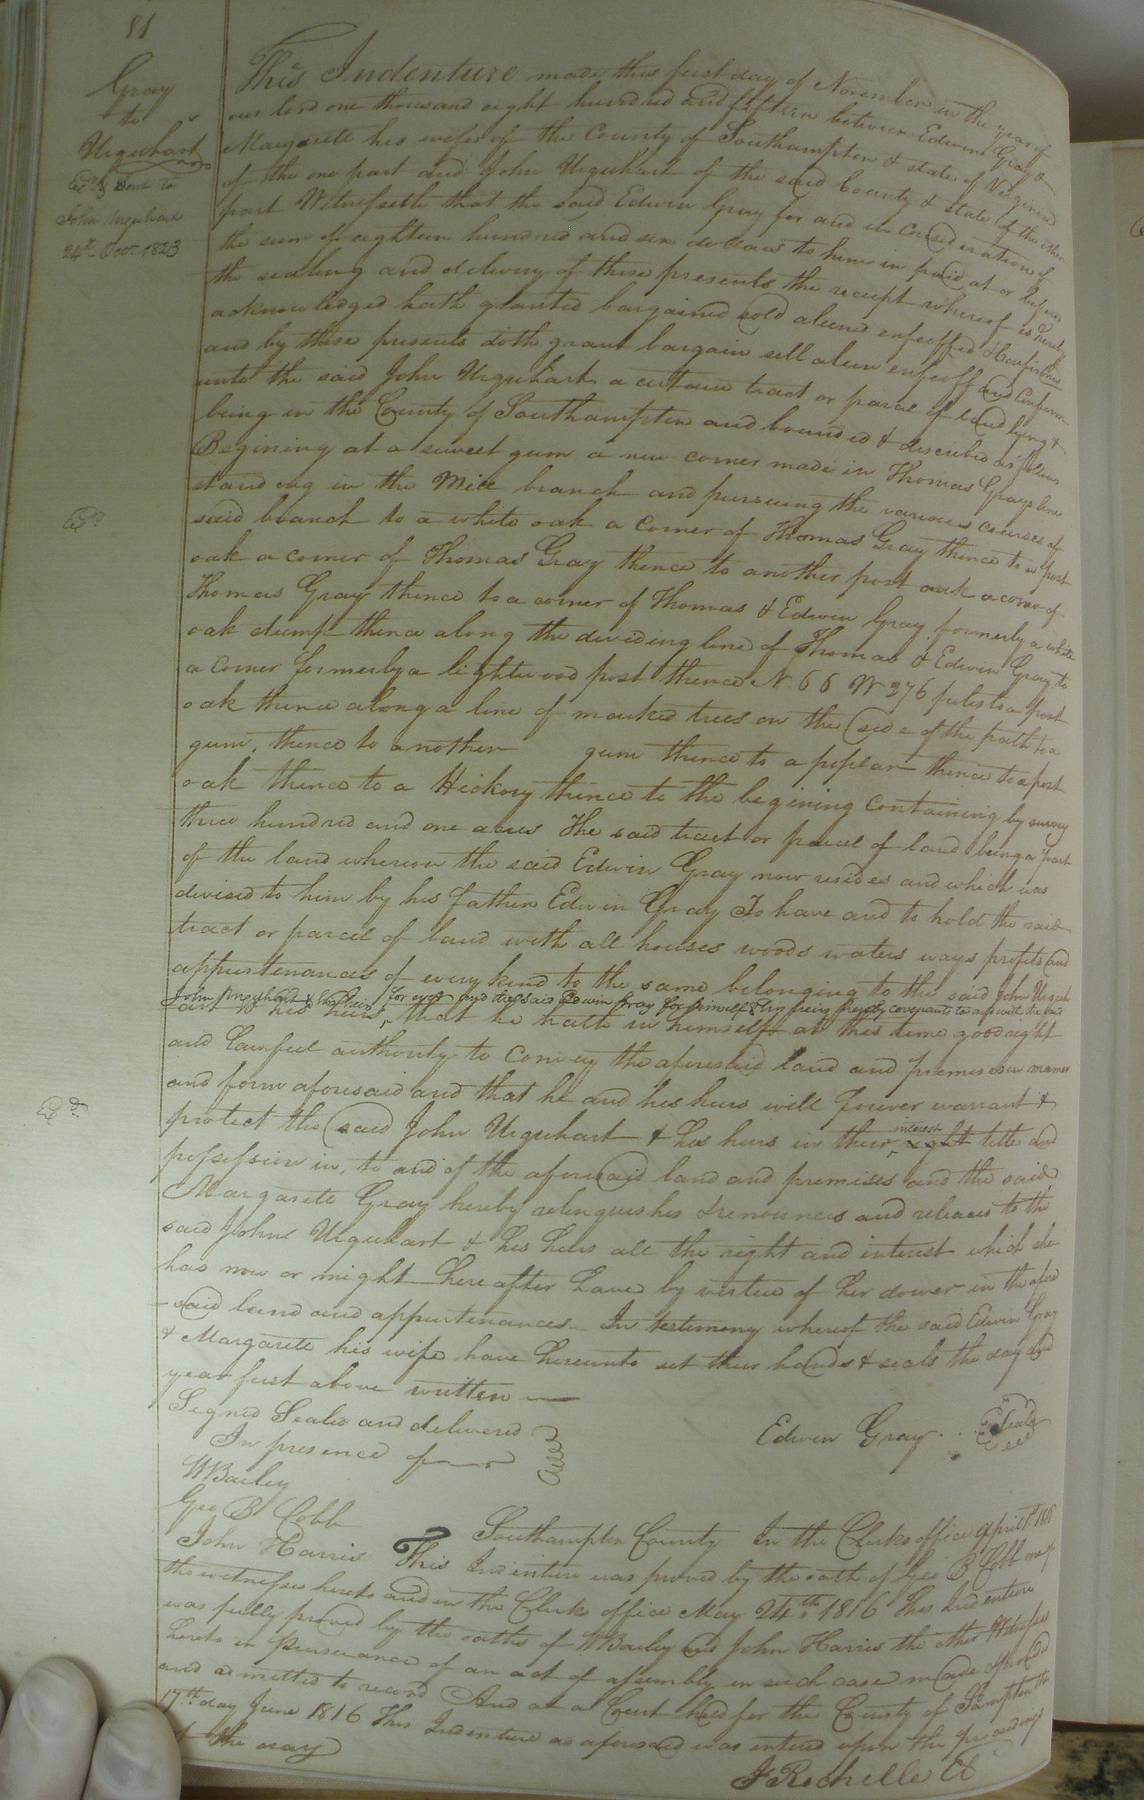 81
Gray
to
Urquhart
Exd & sent to
John Urquhart
24th Octr 1823
Exd
Exd
This Indenture made this first day of November in the year of
our lord one thousand eight hundred and fifteen between Edwin Gray &
Margarett his wife of the County of Southampton & state of Virginia
of the one part and John Urquhart of the said County & state of the other
part Witnesseth that the said Edwin Gray for and in consideration of
the sum of eighteen hundred and six dollars to him in paid at or before
the sealing and delivery of these presents the receipt whereof is hereby
acknowledged hath granted bargained sold aliened enfeoffed & confirmed
and by these presents doth grant bargain sell alien enfeoff and confirm
unto the said John Urquhart a certain tract or parcel of land lying &
being in the County of Southampton and bounded & described as follows
Begining at a sweet gum a new corner made in Thomas Grays line
standing in the Mill branch and pursuing the various courses of
said branch to a white oak a corner of Thomas Gray thence to a post
oak a corner of Thomas Gray thence to another post oak a corner of
Thomas Gray thence to a corner of Thomas & Edwin Gray formerly a white
oak stump thence along the dividing line of Thomas & Edwin Gray to
a corner formerly a lightwood post thence N 66 W 276 poles to a post
oak thence along a line of marked trees on the side of the path to a
gum, thence to another gum thence to a poplar thence to a post
oak thence to a Hickory thence to the begining containing by survey
three hundred and one acres The said tract or parcel of land being a part
of the land whereon the said Edwin Gray now resides and which was
devised to him by his father Edwin Gray To have and to hold the said
tract or parcel of land with all houses woods waters ways profits and
appurtenances of every kind to the same belonging to the said John Urquhart
John Urquhart & his heirs for ever and the said Edwin Gray for himself & his heirs hereby covenants to and with the said
& his heirs, that he hath in himself at this time good right
and lawful authority to convey the aforesaid land and premises in manner
and form aforesaid and that he and his heirs will forever warrant &
protect the said John Urquhart & his heirs in their interest right title and
possession in, to and of the aforesaid land and premises and the said
Margarett Gray hereby relinquishes & renounces and releases to the
said John Urquhart & his heirs all the right and interest which she
has now or might hereafter have by virtue of her dower in the afore
-said land and appurtenances. In testimony whereof the said Edwin Gray
& Margarett his wife have hereunto set their hands & seals the day and
year first above written
Signed Sealed and delivered
In presence of
WBailey
Geo B Cobb
John Harris
Edwin Gray . . Seal
Southampton County In the Clerks office April 1st 1816
This Indenture was proved by the oath of Geo B Cobb one of
the witnesses hereto and in the Clerks office May 24th 1816 This Indenture
was fully proved by the oaths of WBailey and John Harris the other Witnesses
hereto in pursuance of an act of assembly in such case made & provided
and admitted to record And at a Court held for the County of Sampton the
17th day June 1816 This Indenture as aforesaid was entered upon the proceedings
of the day
J Rochelle Cl